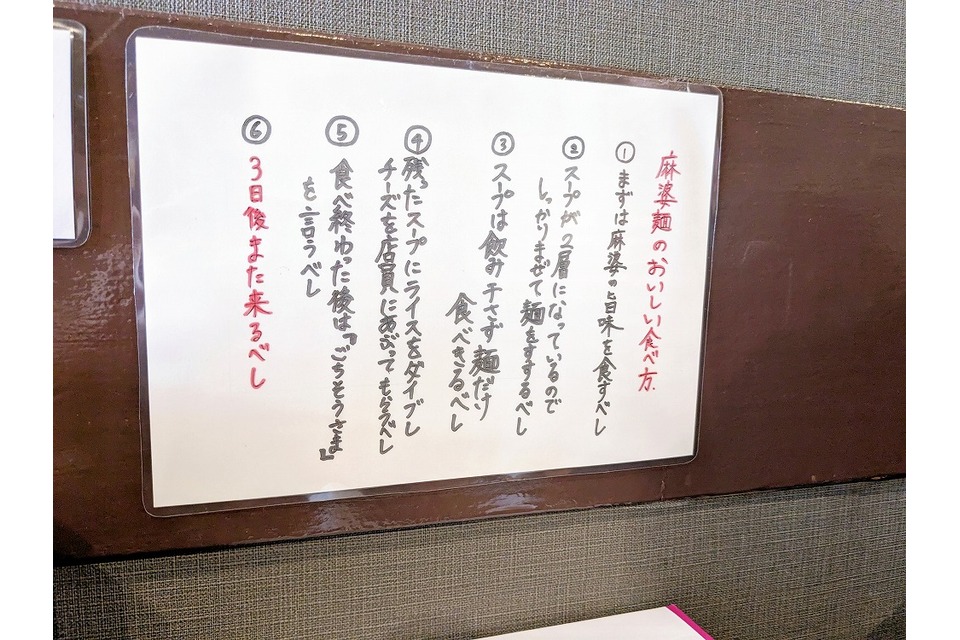 麻婆麺のおいしい食べ方.
① まずは麻婆の旨味を食すべし
② スープが2層になっているので
しっかりまぜて麺をすするべし
③ スープは飲み干さず麺だけ
食べきるべし
④ 残ったスープにライスをダイブし
チーズを店員にあぶってもらうべし
⑤ 食べ終わった後は『ごちそうさま』
を言うべし
⑥ 3日後また来るべし